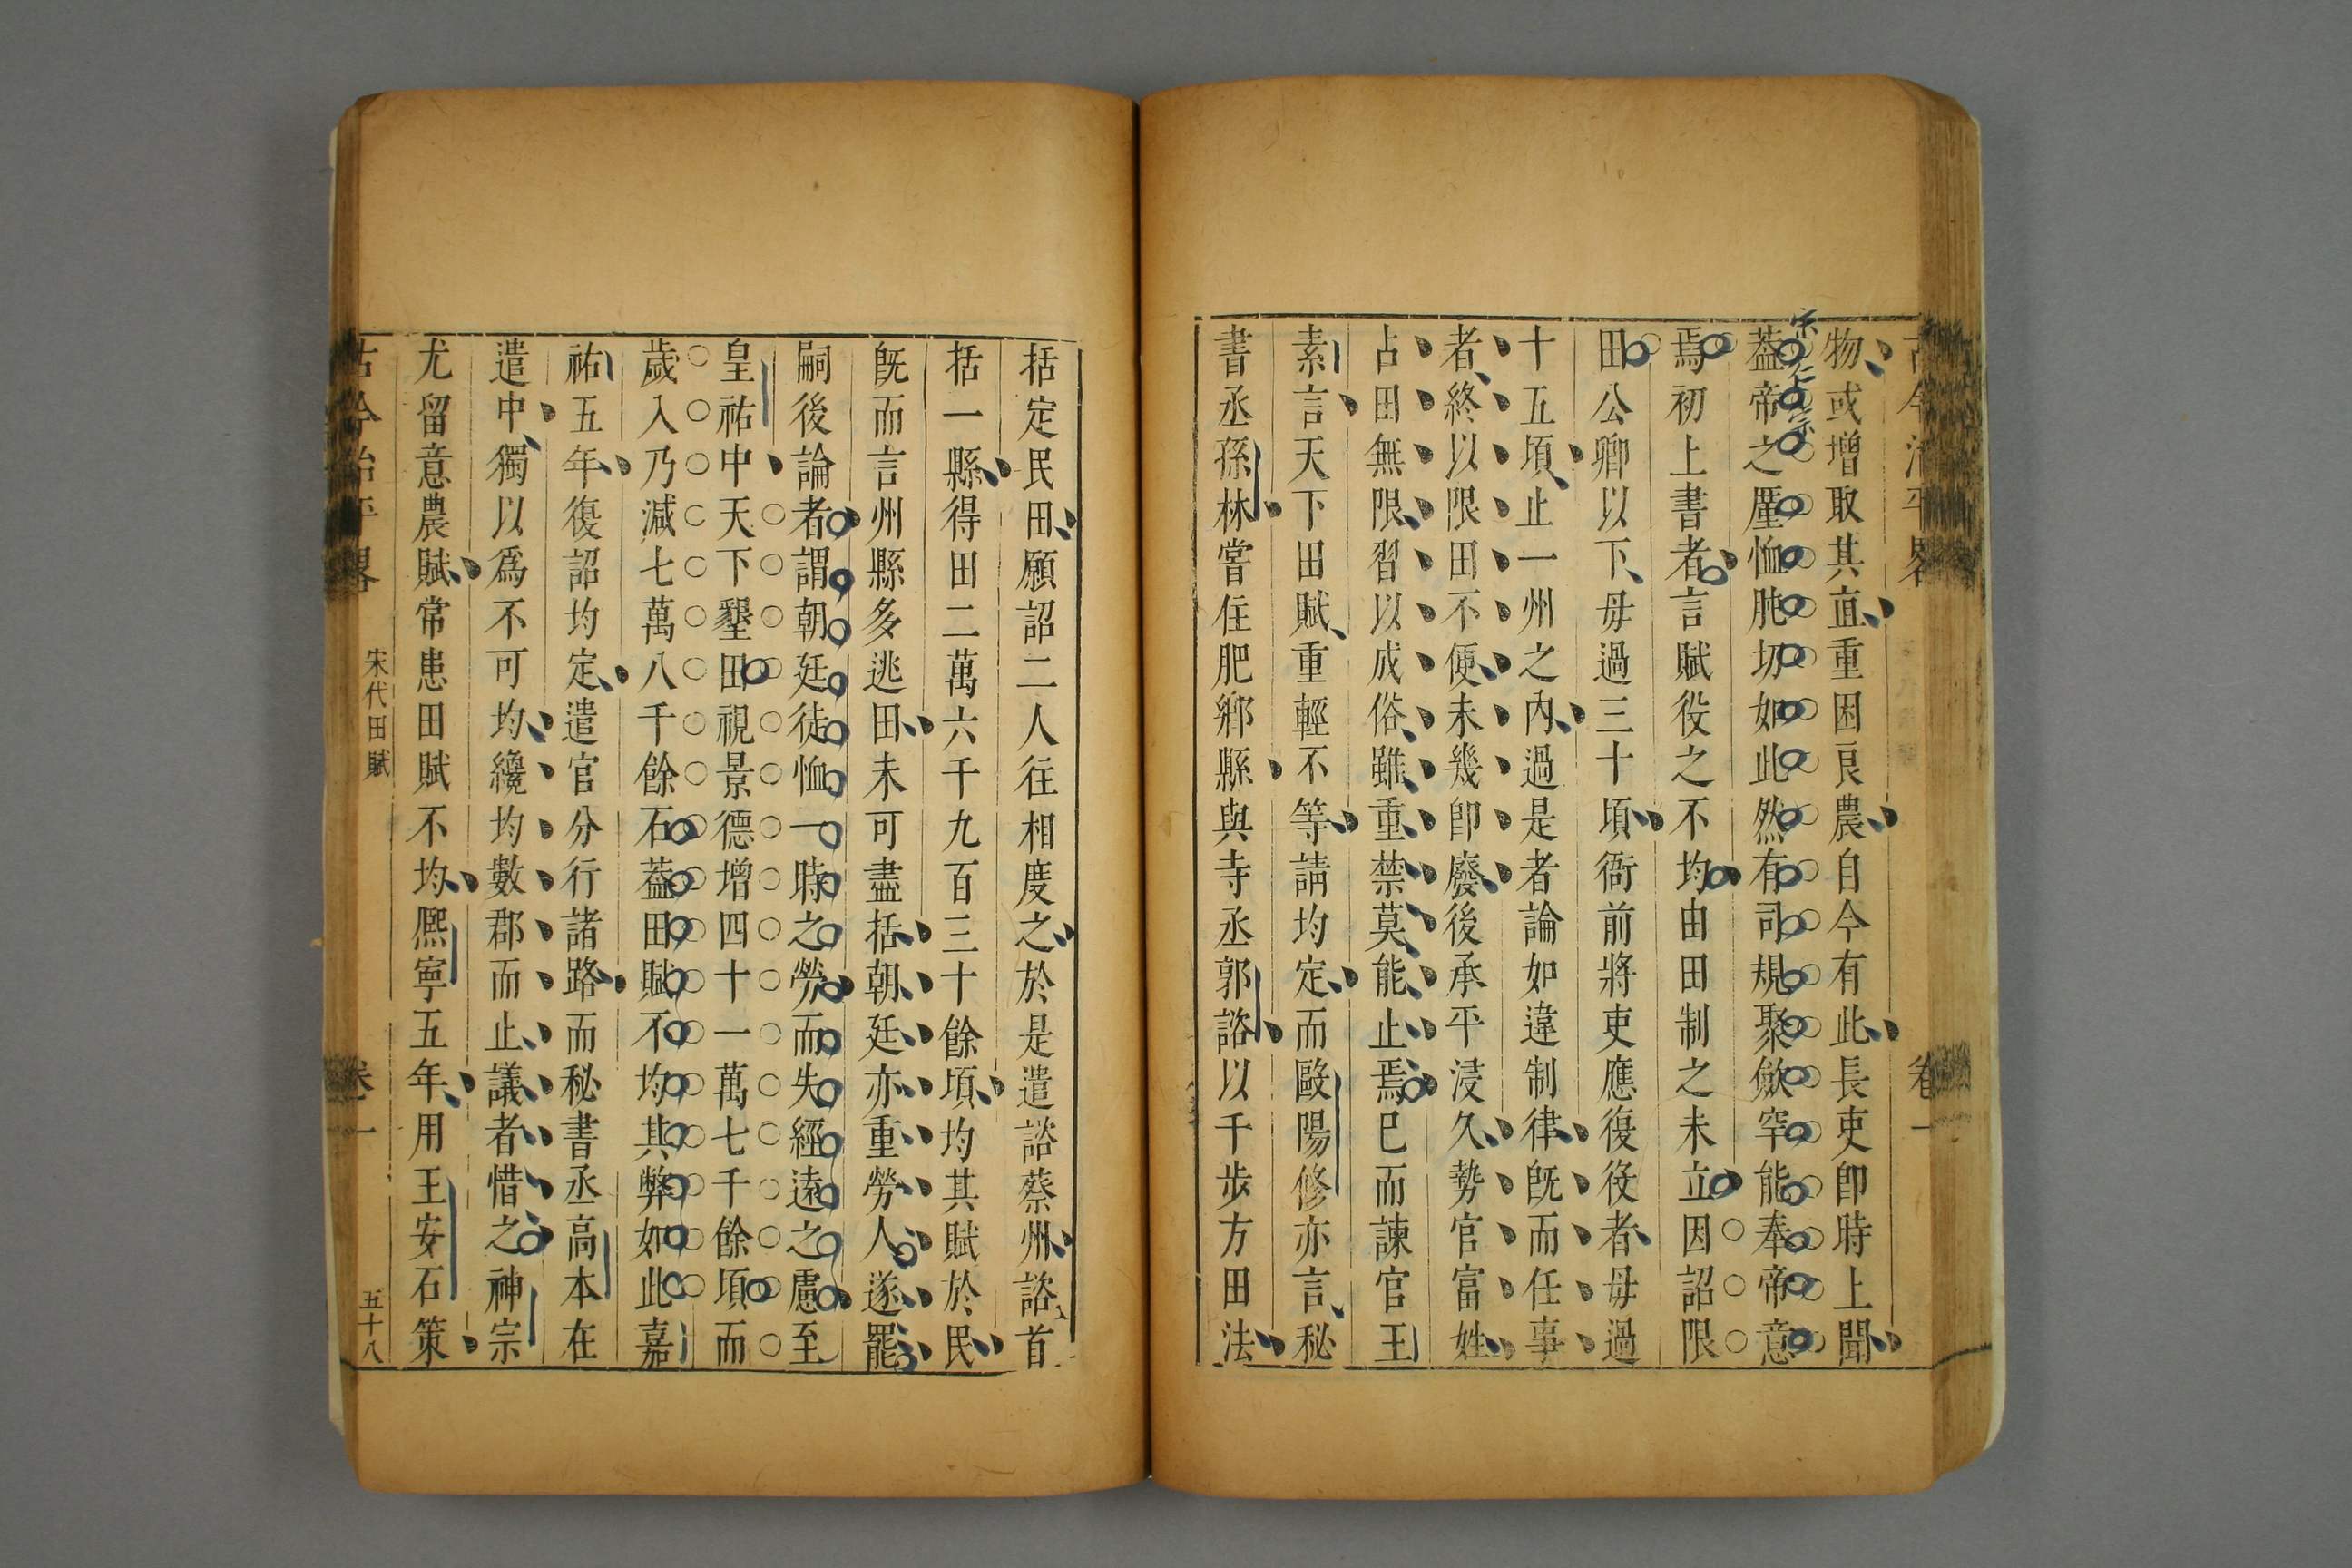 古今治平畧 卷一
物或增取其直重困良農自今有此長吏卽時上聞
葢帝之厪恤肫切如此然有司規聚斂罕能奉帝意
焉初上書者言賦役之不均由田制之未立因詔限
田公卿以下毋過三十頃衙前將吏應復役者毋過
十五頃止一州之內過是者論如違制律旣而任事
者終以限田不便未幾卽廢後承平浸久勢官富姓
占田無限習以成俗雖重禁莫能止焉巳而諫官王
素言天下田賦重輕不等請均定而歐陽修亦言秘
書丞孫林嘗任肥鄉縣與寺丞郭諮以千步方田法
括定民田願詔二人往相度之於是遣諮蔡州諮首
括一縣得田二萬六千九百三十餘頃均其賦於民
旣而言州縣多逃田未可盡括朝廷亦重勞人遂罷
嗣後論者謂朝廷徒恤一時之勞而失經遠之慮至
皇祐中天下墾田視景德增四十一萬七千餘頃而
歲入乃減七萬八千餘石葢田賦不均其弊如此嘉
祐五年復詔均定遣官分行諸路而秘書丞高本在
遣中獨以爲不可均纔均數郡而止議者惜之神宗
尤留意農賦常患田賦不均熈寧五年用王安石策
古今治平畧 宋代田賦 卷一 五十八